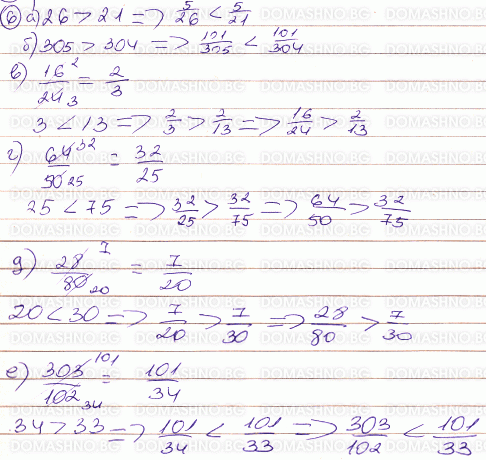 6 а) 26 > 21 => 5/26 < 5/21
б) 305 > 304 => 101/305 < 101/304
в) 16/24 2/3 = 2/3
3 < 13 => 2/3 > 2/13 => 16/24 > 2/13
г) 64/50 32/25 = 32/25
25 < 75 => 32/25 > 32/75 => 64/50 > 32/75
д) 28/80 7/20 = 7/20
20 < 30 => 7/20 > 7/30 => 28/80 > 7/30
е) 303/102 101/34 = 101/34
34 > 33 => 101/34 < 101/33 => 303/102 < 101/33
DOMASHNO.BG